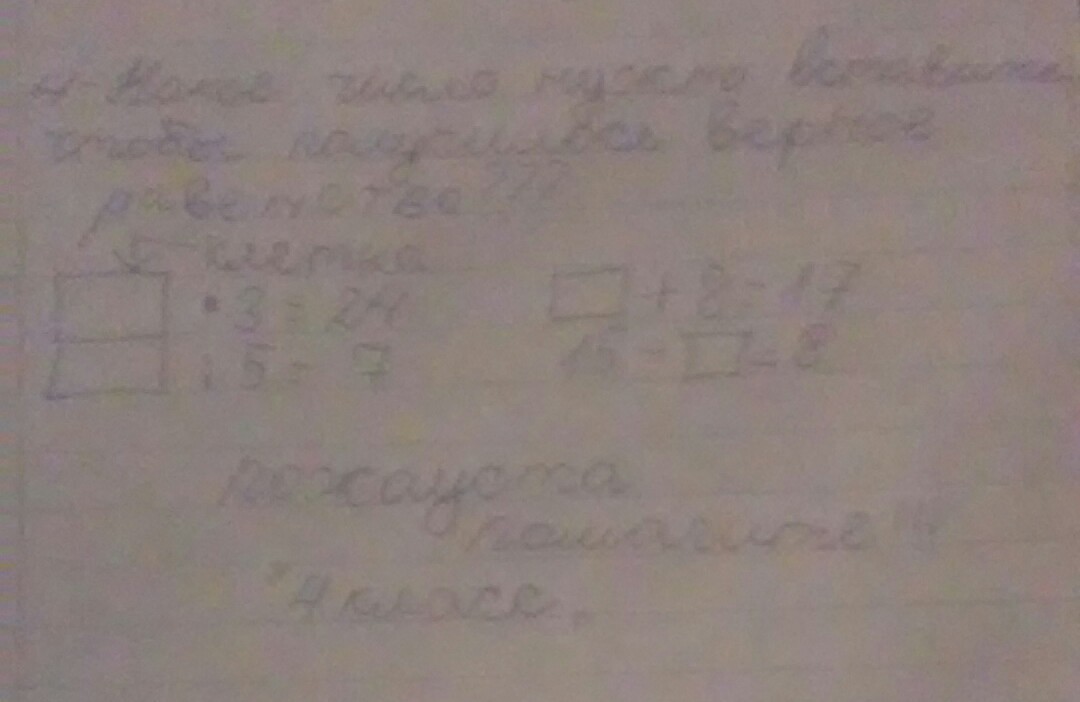 4. Какое число нужно вставить,
чтобы получилось верное
равенство???
клетка
□ · 3 = 24 □ + 8 = 17
□ : 5 = 7 15 - □ = 8
пожауста
помагите!!!
4 класс.